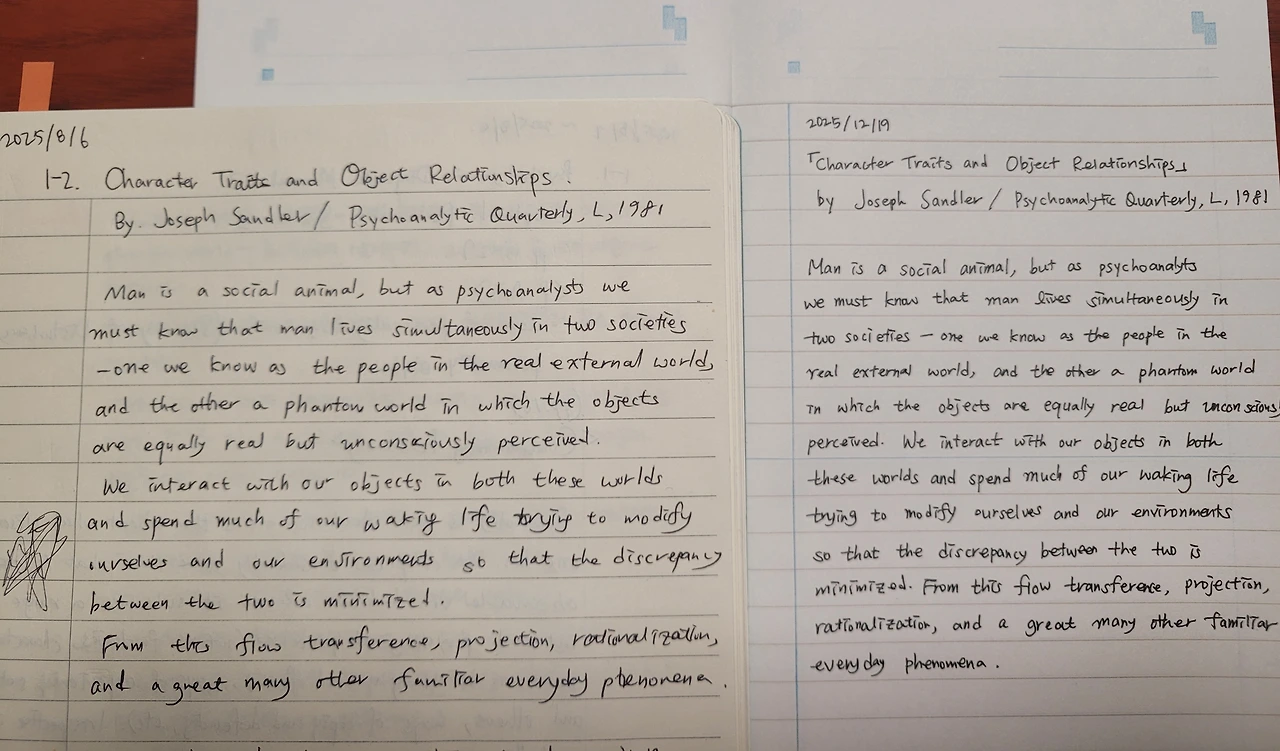 2025/8/6
1-2. Character Traits and Object Relationships.
By. Joseph Sandler / Psychoanalytic Quarterly, L, 1981
Man is a social animal, but as psychoanalysts we
must know that man lives simultaneously in two societies
—one we know as the people in the real external world,
and the other a phantom world in which the objects
are equally real but unconsciously perceived.
We interact with our objects in both these worlds
and spend much of our waking life trying to modify
ourselves and our environments so that the discrepancy
between the two is minimized.
From this flow transference, projection, rationalization,
and a great many other familiar everyday phenomena.
2025/12/19
「Character Traits and Object Relationships」
by Joseph Sandler / Psychoanalytic Quarterly, L, 1981
Man is a social animal, but as psychoanalysts
we must know that man lives simultaneously in
two societies — one we know as the people in the
real external world, and the other a phantom world
in which the objects are equally real but unconsciously
perceived. We interact with our objects in both
these worlds and spend much of our waking life
trying to modify ourselves and our environments
so that the discrepancy between the two is
minimized. From this flow transference, projection,
rationalization, and a great many other familiar
everyday phenomena.